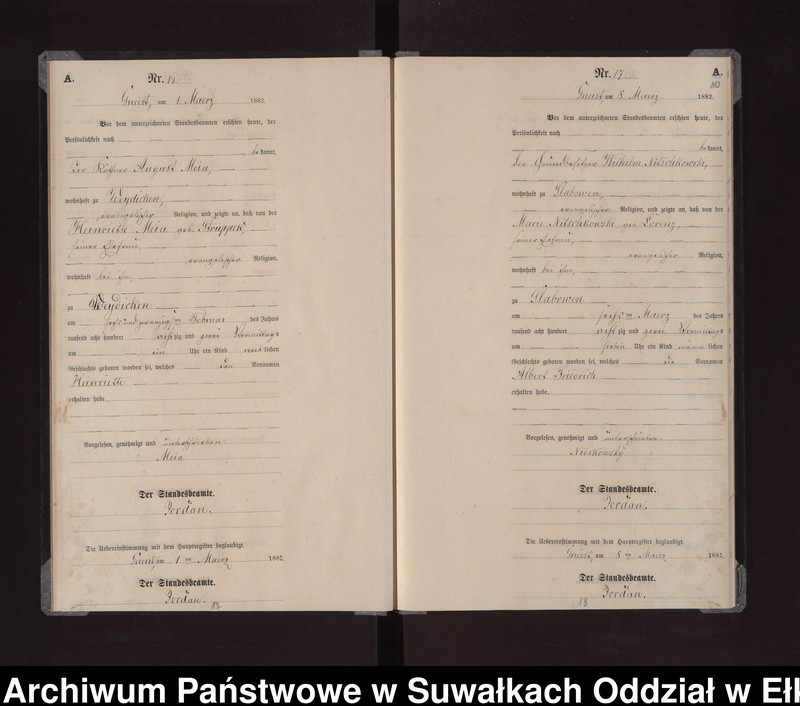 A.
Nr.
am 1 Maerz 1882.
Vor dem unterzeichneten Standesbeamten erschien heute, der
Persönlichkeit nach
be kannt,
der August Meia,
wohnhaft zu Weydicken,
evangelischer Religion, und zeigte an, daß von der
Heinriette Meia geb.
seiner Ehefrau,
evangelischer Religion,
wohnhaft bei ihm,
zu Weydicken
am sechsundzwanzigsten Februar des Jahres
tausend acht hundert achtzig und zwei Vormittags
um ein Uhr ein Kind weib lichen
Geschlechts geboren worden sei, welches den Vornamen
Heinriette
erhalten habe.
Vorgelesen, genehmigt und unterschrieben
Meia
Der Standesbeamte.
Jordan.
Die Uebereinstimmung mit dem Hauptregister beglaubigt.
am 1 ten Maerz 1882.
Der Standesbeamte.
Jordan.
Nr. 17
A.
am 8. Maerz 1882.
Vor dem unterzeichneten Standesbeamten erschien heute, der
Persönlichkeit nach
be kannt,
der Grundbesitzer Wilhelm Nitschkowski,
wohnhaft zu Slabowen,
evangelischer Religion, und zeigte an, daß von der
Marie Nitschkowski geb. Lorenz,
seiner Ehefrau,
evangelischer Religion,
wohnhaft bei ihm,
zu Slabowen
am sechsten Maerz des Jahres
tausend acht hundert achtzig und zwei Vormittags
um sieben Uhr ein Kind männ lichen
Geschlechts geboren worden sei, welches die Vornamen
Albert Friedrich
erhalten habe.
Vorgelesen, genehmigt und unterschrieben
Nitskowsky
Der Standesbeamte.
Jordan.
Die Uebereinstimmung mit dem Hauptregister beglaubigt.
am 8 ten Maerz 1882.
Der Standesbeamte.
Jordan.
18
Archiwum Państwowe w Suwałkach Oddział w Ełk